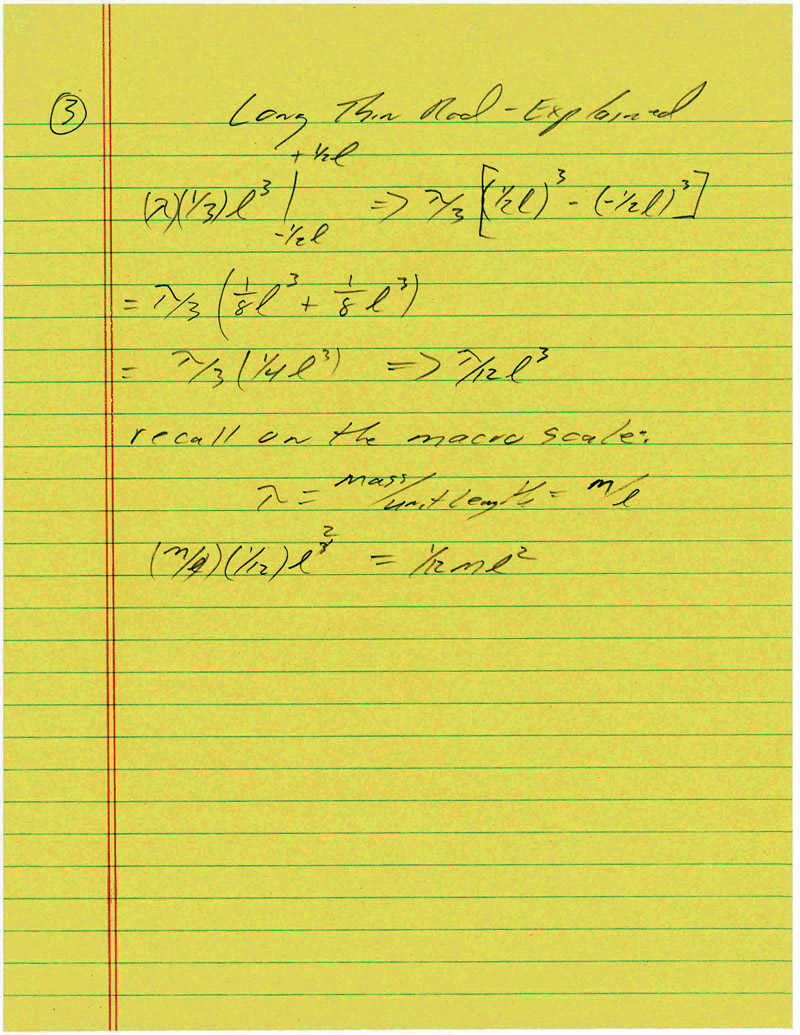 ③ Long Thin Rod - Explained
(λ)(1/3)l³ |₋₁/₂ₗ^+1/2l => λ/3 [(1/2l)³ - (-1/2l)³]
= λ/3 (1/8 l³ + 1/8 l³)
= λ/3 (1/4 l³) => λ/12 l³
recall on the macro scale:
λ = mass/unit length = m/l
(m/l)(1/12) l³ ² = 1/12 ml²